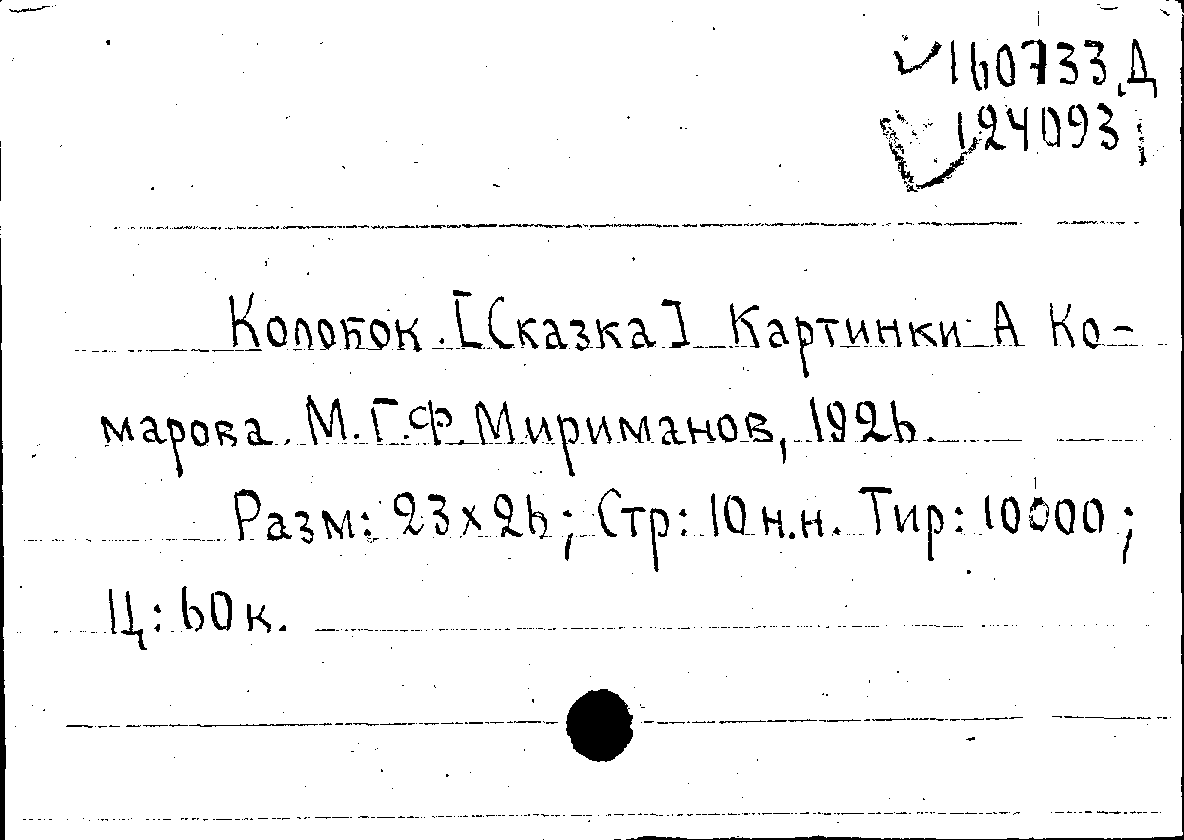 160733 Д
124093
Колобок. [Сказка] Картинки А Ко-
марова. М. Г.Ф. Мириманов, 1926.
Разм: 23x26; Стр: 10 н.н. Тир: 10000;
Ц: 60 к.